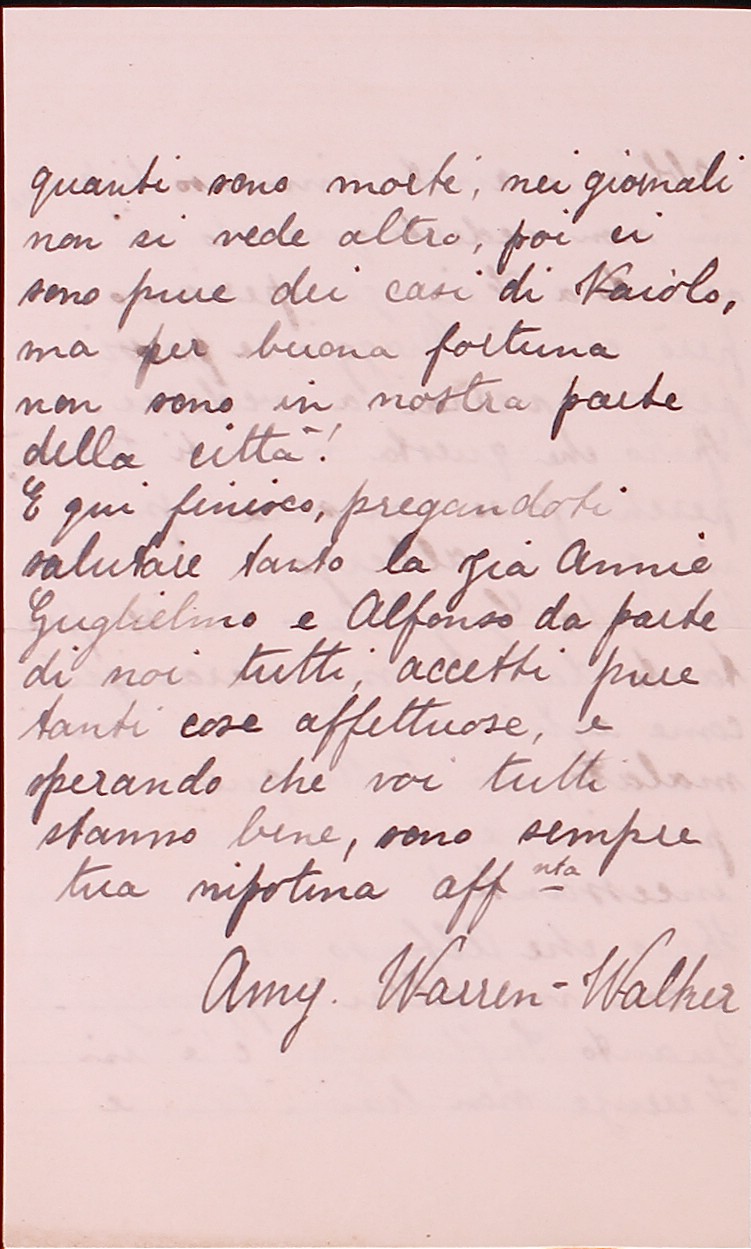 quanti sono morti, nei giornali
non si vede altro, poi ci
sono pure dei casi di Vaiolo,
ma per buona fortuna
non sono in nostra parte
della città!
E qui finisco, pregandoti
salutare tanto la zia Annie
Guglielmo e Alfonso da parte
di noi tutti, accetti pure
tanti cose affettuose, e
sperando che voi tutti
stanno bene, sono sempre
tua nipotina aff nta
Amy. Warren-Walker